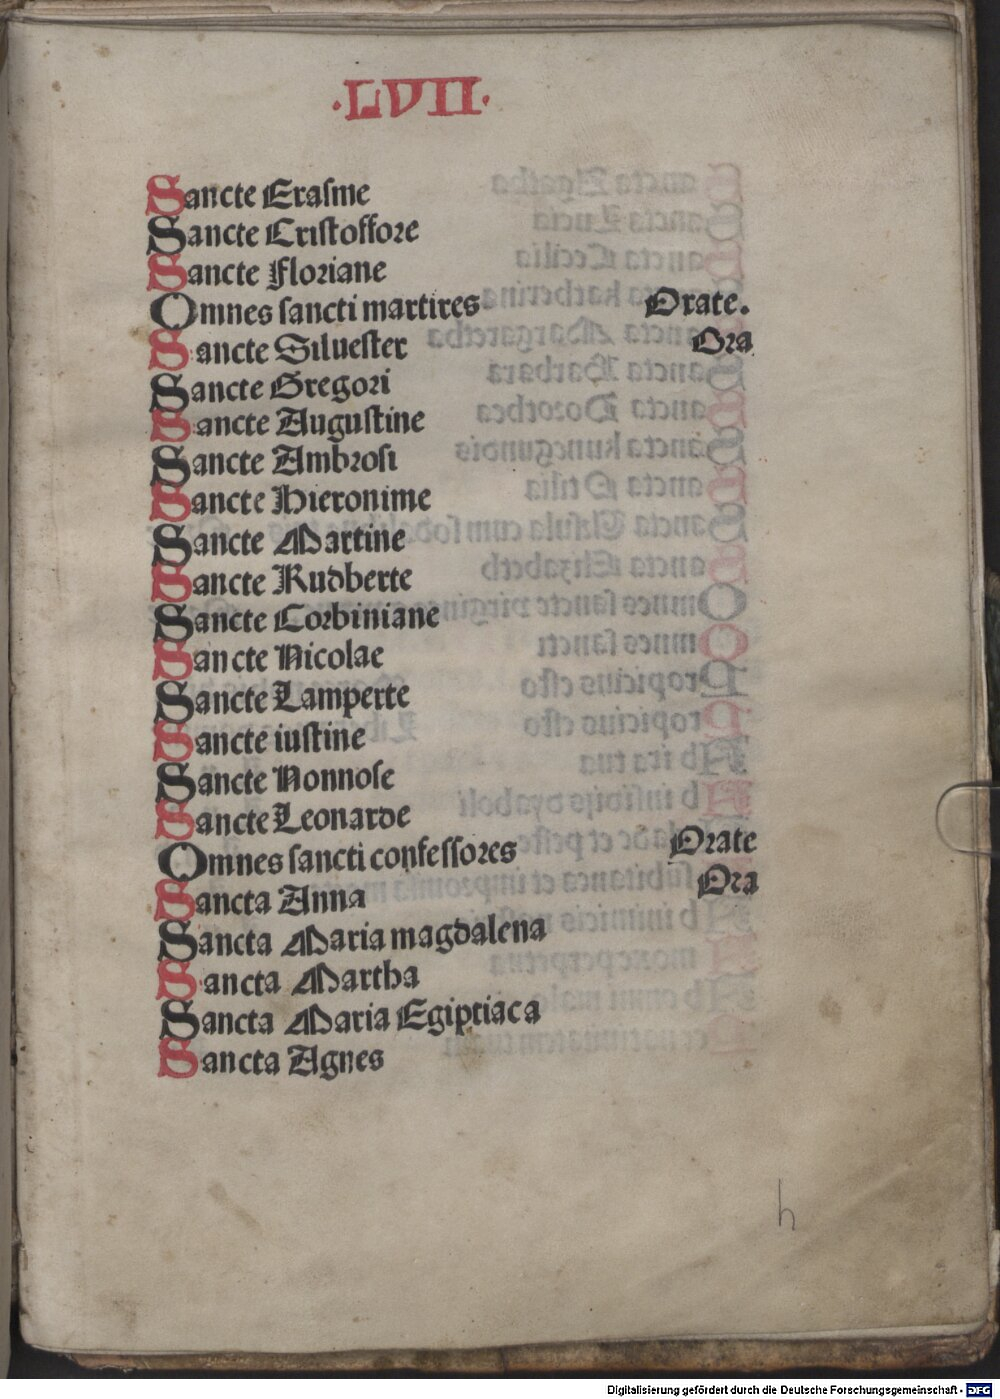 ·LVII·
Sancte Erasme
Sancte Cristoffore
Sancte Floriane
Omnes sancti martires Orate.
Sancte Siluester Ora
Sancte Gregori
Sancte Augustine
Sancte Ambrosi
Sancte Hieronime
Sancte Martine
Sancte Rudberte
Sancte Corbiniane
Sancte Nicolae
Sancte Lamperte
Sancte iustine
Sancte Nonnose
Sancte Leonarde
Omnes sancti confessores Orate
Sancta Anna Ora
Sancta Maria magdalena
Sancta Martha
Sancta Maria Egiptiaca
Sancta Agnes
h
Digitalisierung gefördert durch die Deutsche Forschungsgemeinschaft - DFG